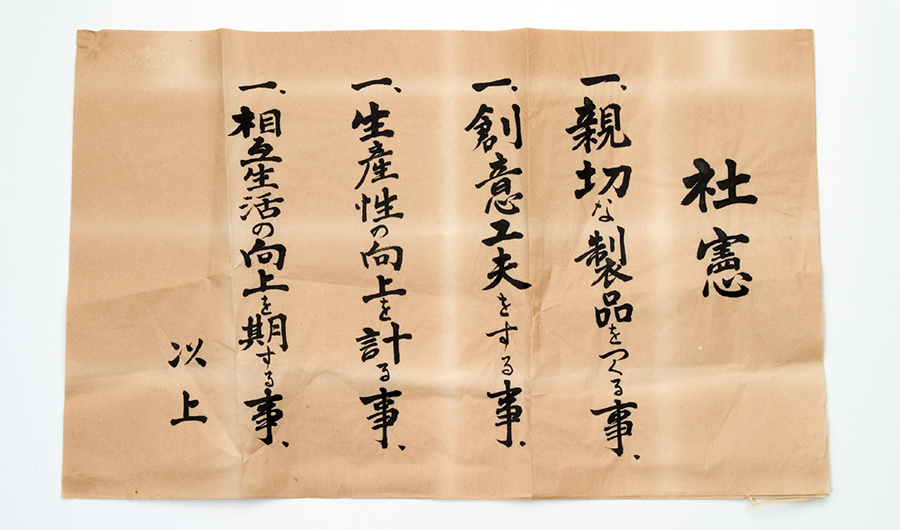 社憲
一、親切な製品をつくる事、
一、創意工夫をする事、
一、生産性の向上を計る事、
一、相互生活の向上を期する事、
以上